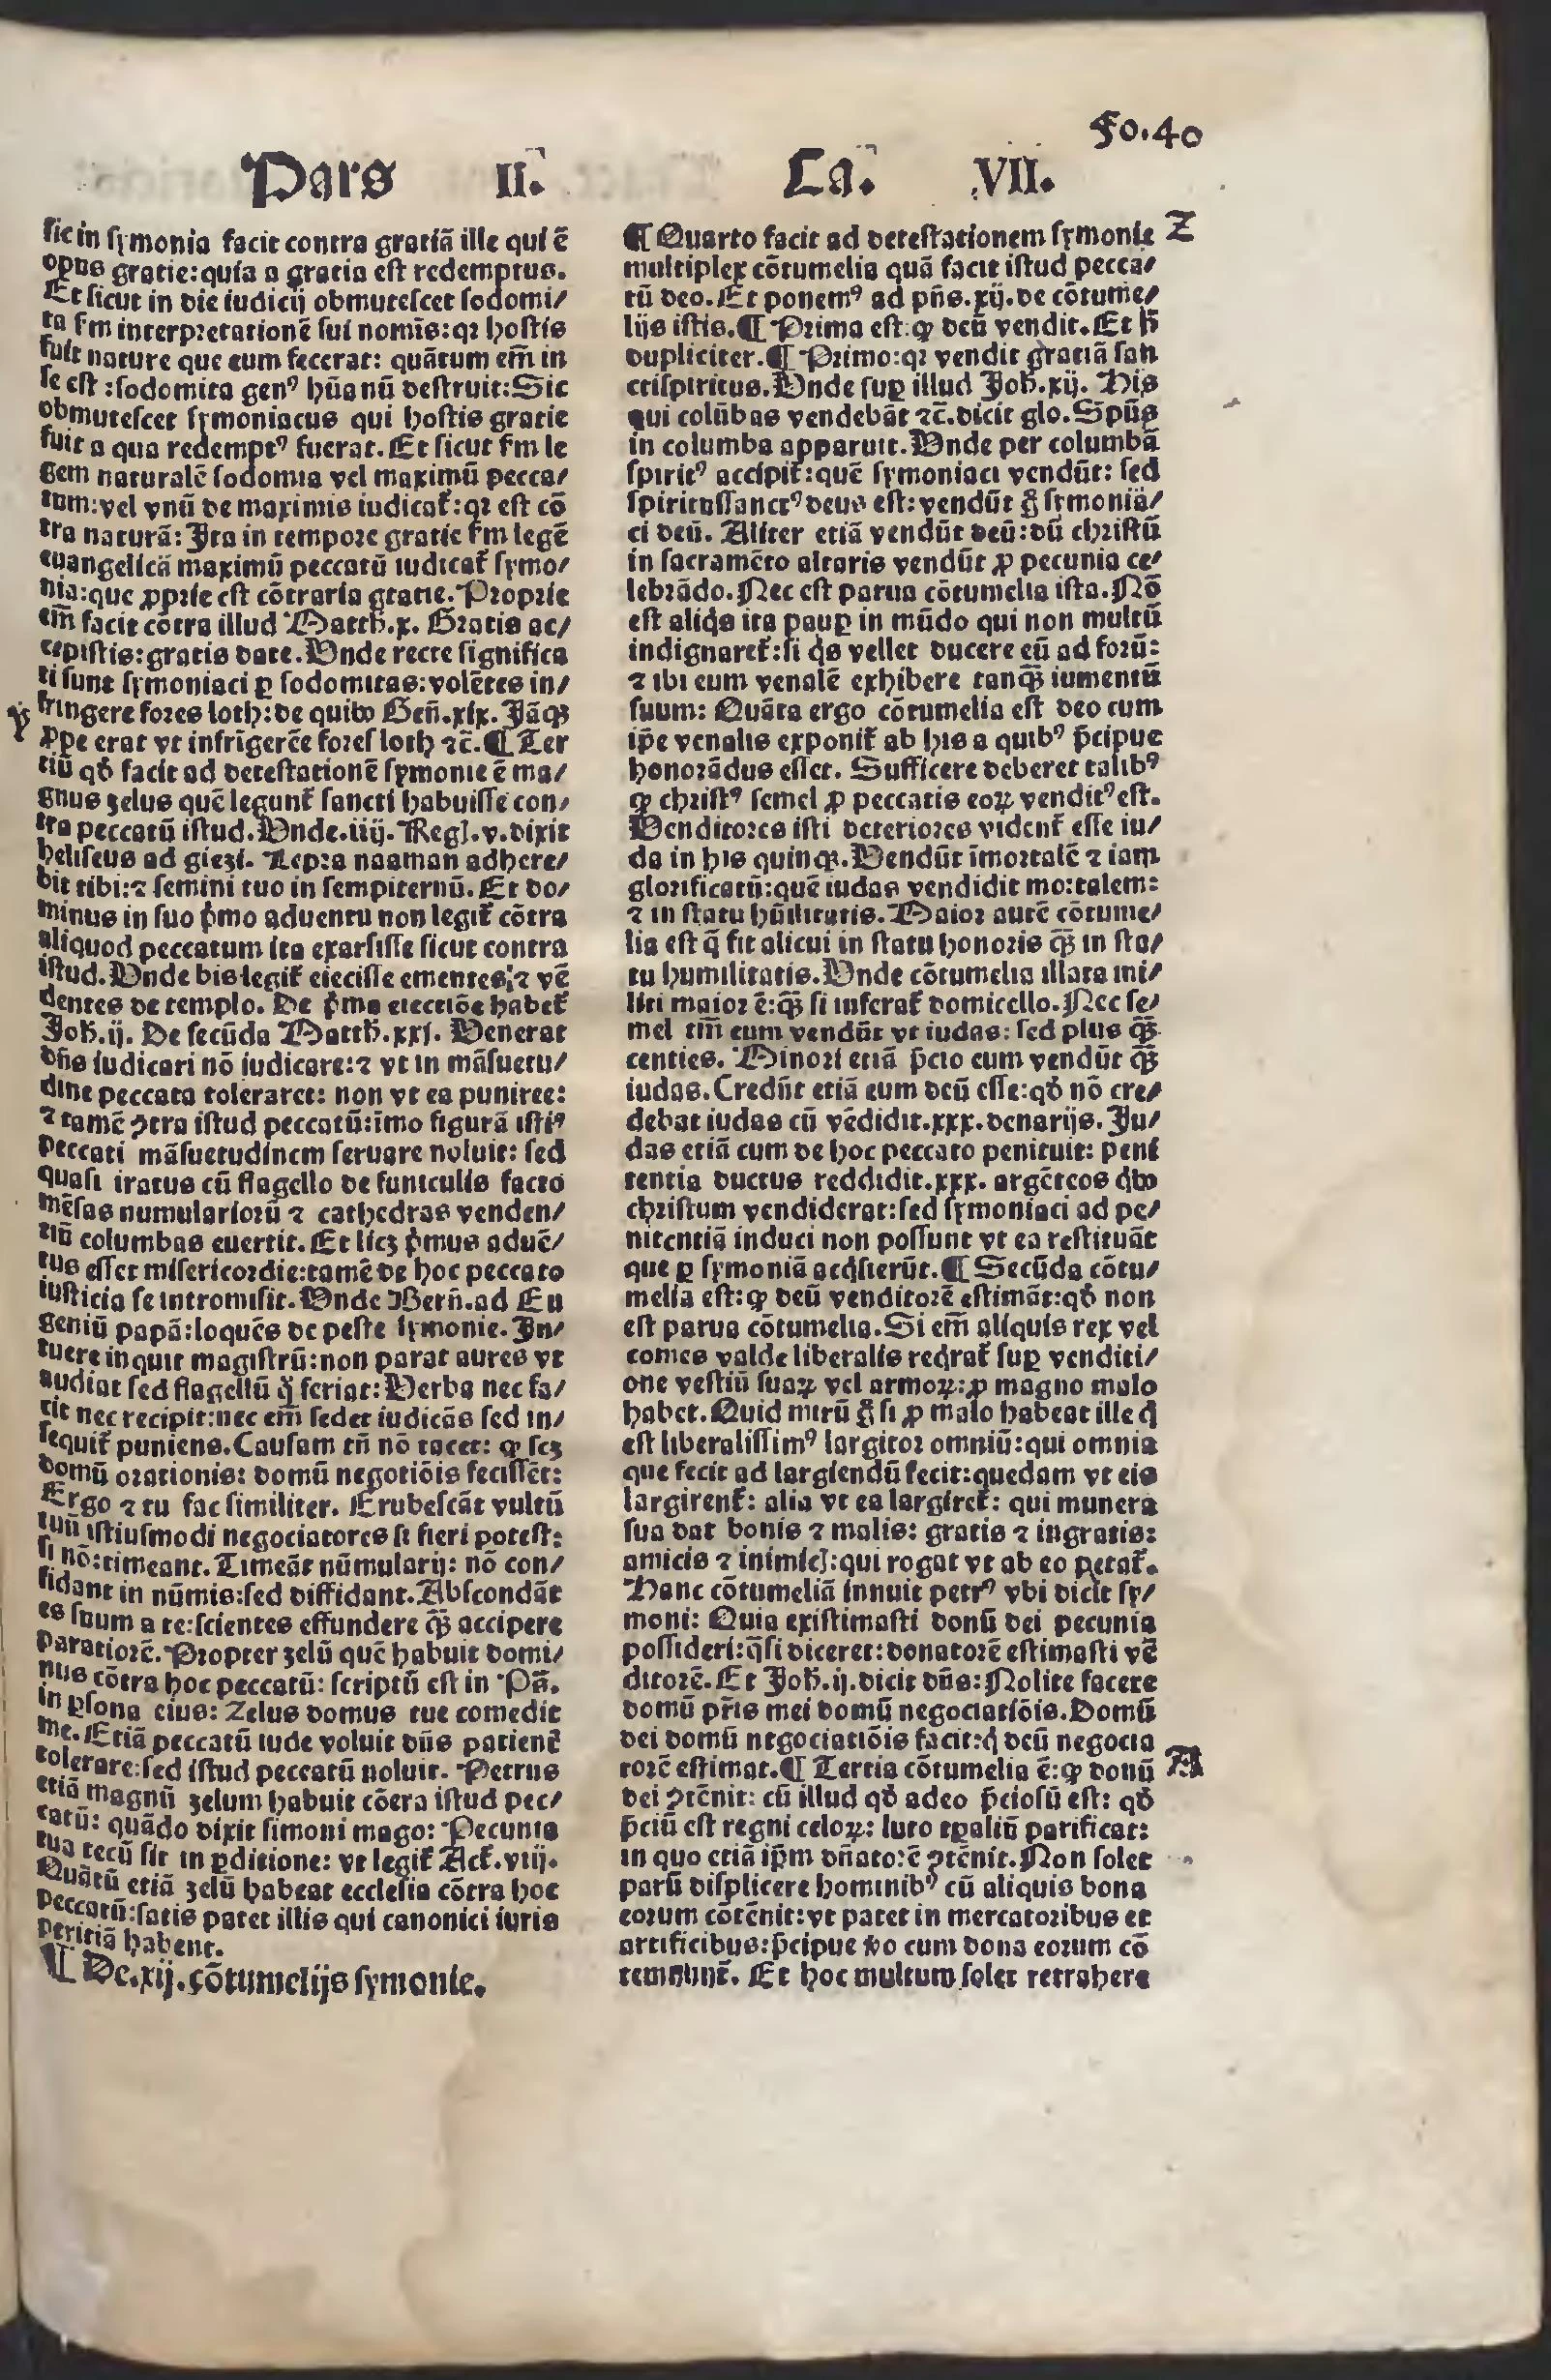 Fo.40
Pars II. Ca. VII.
sic in symonia facit contra gratiā ille qui ē
opus gratie: quia a gratia est redemptus.
Et sicut in die iudicij obmutescet sodomi/
ta ſm interpretationē sui nomīs: qꝛ hostis
fuit nature que eum fecerat: quātum em̄ in
se est: sodomita genꝰ hūanū destruit: Sic
obmutescet symoniacus qui hostis gratie
fuit a qua redemptꝰ fuerat. Et sicut ſm le
gem naturalē sodomia vel maximū pecca/
tum: vel vnū de maximis iudicat̄: qꝛ est cō
tra naturā: Ita in tempore gratie ſm legē
euangelicā maximū peccatū iudicat̄ symo/
nia: que ꝓprie est cōtraria gratie. Proprie
em̄ facit cōtra illud Matth̄.x. Gratis ac/
cepistis: gratis date. Vnde recte significa
ti sunt symoniaci ꝑ sodomitas: volētes in/
Y
fringere fores loth: de quibꝰ Geñ.xix. Iāqꝫ
ꝓpe erat vt infrīgerēt fores loth ⁊c̄. ¶ Ter
tiū qd̄ facit ad detestationē symonie ē ma/
gnus zelus quē legunt̄ sancti habuisse con/
tra peccatū istud. Vnde.iiij. Regꝭ.v. dixit
heliseus ad giezi. Lepra naaman adhere/
bit tibi: ⁊ semini tuo in sempiternū. Et do/
minus in suo p̄mo aduentu non legit̄ cōtra
aliquod peccatum ita exarsisse sicut contra
istud. Vnde bis legit̄ eiecisse ementes: ⁊ vē
dentes de templo. De p̄ma eiectiōe habet̄
Joh̄.ij. De secūda Matth̄.xxj. Venerat
dn̄s iudicari nō iudicare: ⁊ vt in māsuetu/
dine peccata toleraret: non vt ea puniret:
⁊ tamē ↄtra istud peccatū: imo figurā istiꝰ
peccati māsuetudinem seruare noluit: sed
quasi iratus cū flagello de funiculis facto
mēsas numulariorū ⁊ cathedras venden/
tiū columbas euertit. Et licꝫ p̄mus aduē/
tus esset misericordie: tamē de hoc peccato
iusticia se intromisit. Vnde Bern̄. ad Eu
geniū papā: loquēs de peste symonie. In/
tuere inquit magistrū: non parat aures vt
audiat sed flagellū q̄ feriat: Verba nec fa/
cit nec recipit: nec em̄ sedet iudicās sed in/
sequit̄ puniens. Causam tn̄ nō tacet: ꝙ scꝫ
domū orationis: domū negotiōis fecissēt:
Ergo ⁊ tu fac similiter. Erubescāt vultū
tuū istiusmodi negociatores si fieri potest:
si nō: timeant. Timeāt nūmularij: nō con/
fidant in nūmis: sed diffidant. Abscondāt
es suum a te: scientes effundere q̄ꝫ accipere
paratiorē. Propter zelū quē habuit domi/
nus cōtra hoc peccatū: scriptū est in Pā.
in ꝑsona eius: Zelus domus tue comedit
me. Etiā peccatū iude voluit dn̄s patient̄
tolerare: sed istud peccatū noluit. Petrus
etiā magnū zelum habuit cōtra istud pec/
catū: quādo dixit simoni mago: Pecunia
tua tecū sit in ꝑditione: vt legit̄ Act̄.viij.
Quātū etiā zelū habeat ecclesia cōtra hoc
peccatū: satis patet illis qui canonici iuris
peritiā habent.
¶ De.xij. cōtumelijs symonie.
¶ Quarto facit ad detestationem symonie
Z
multiplex cōtumelia quā facit istud pecca/
tū deo. Et ponemꝰ ad pn̄s.xij. de cōtume/
lijs istis. ¶ Prima est: ꝙ deū vendit. Et h̄
dupliciter. ¶ Primo: qꝛ vendit gratiā san
ctispiritus. Vnde suꝑ illud Joh̄.xij. His
qui colūbas vendebāt ⁊c̄. dicit glo. Spūs
in columba apparuit. Vnde per columbā
spiritꝰ accipit̄: quē symoniaci vendūt: sed
spiritussanctꝰ deus est: vendūt g̊ symonia/
ci deū. Aliter etiā vendūt deū: dū christū
in sacramēto altaris vendūt ꝓ pecunia ce/
lebrādo. Nec est parua cōtumelia ista. Nō
est aliqͥs ita pauꝑ in mūdo qui non multū
indignaret̄: si qͥs vellet ducere eū ad forū:
⁊ ibi eum venalē exhibere tanq̄ꝫ iumentū
suum: Quāta ergo cōtumelia est deo cum
ip̄e venalis exponit̄ ab his a quibꝰ p̄cipue
honorādus esset. Sufficere deberet talibꝰ
ꝙ christꝰ semel ꝓ peccatis eoꝝ venditꝰ est.
Venditores isti deteriores vident̄ esse iu/
da in his quinqꝫ. Vendūt īmortalē ⁊ iam
glorificatū: quē iudas vendidit mortalem:
⁊ in statu hūilitatis. Maior autē cōtume/
lia est q̄ fit alicui in statu honoris q̄ꝫ in sta/
tu humilitatis. Vnde cōtumelia illata mi/
liti maior ē: q̄ꝫ si inferat̄ domicello. Nec se/
mel tm̄ eum vendūt vt iudas: sed plus q̄ꝫ
centies. Minori etiā p̄cio eum vendūt q̄ꝫ
iudas. Credūt etiā eum deū esse: qd̄ nō cre/
debat iudas cū vēdidit.xxx. denarijs. Ju/
das etiā cum de hoc peccato penituit: peni
tentia ductus reddidit.xxx. argēteos qͥbꝰ
christum vendiderat: sed symoniaci ad pe/
nitentiā induci non possunt vt ea restituāt
que ꝑ symoniā acqͥsierūt. ¶ Secūda cōtu/
melia est: ꝙ deū venditorē estimāt: qd̄ non
est parua cōtumelia. Si em̄ aliquis rex vel
comes valde liberalis reqͥrat̄ suꝑ venditi/
one vestiū suaꝝ vel armoꝝ: ꝓ magno malo
habet. Quid mirū g̊ si ꝓ malo habeat ille qͥ
est liberalissimꝰ largitor omniū: qui omnia
que fecit ad largiendū fecit: quedam vt eis
largirent̄: alia vt ea largiret̄: qui munera
sua dat bonis ⁊ malis: gratis ⁊ ingratis:
amicis ⁊ inimicꝭ: qui rogat vt ab eo petat̄.
Hanc cōtumeliā innuit petrꝰ vbi dicit sy/
moni: Quia existimasti donū dei pecunia
possideri: q̄si diceret: donatorē estimasti vē
ditorē. Et Joh̄.ij. dicit dn̄s: Nolite facere
domū pr̄is mei domū negociatiōis. Domū
dei domū negociatiōis facit: qͥ deū negocia
torē estimat. ¶ Tertia cōtumelia ē: ꝙ donū
A
dei ↄtēnit: cū illud qd̄ adeo p̄ciosū est: qd̄
p̄ciū est regni celoꝝ: luto tꝑaliū parificat:
in quo etiā ip̄m dn̄atorē ↄtēnit. Non solet
parū displicere hominibꝰ cū aliquis bona
eorum cōtēnit: vt patet in mercatoribus et
artificibus: p̄cipue ꝟo cum bona eorum cō
temnunt̄. Et hoc multum solet retrahere